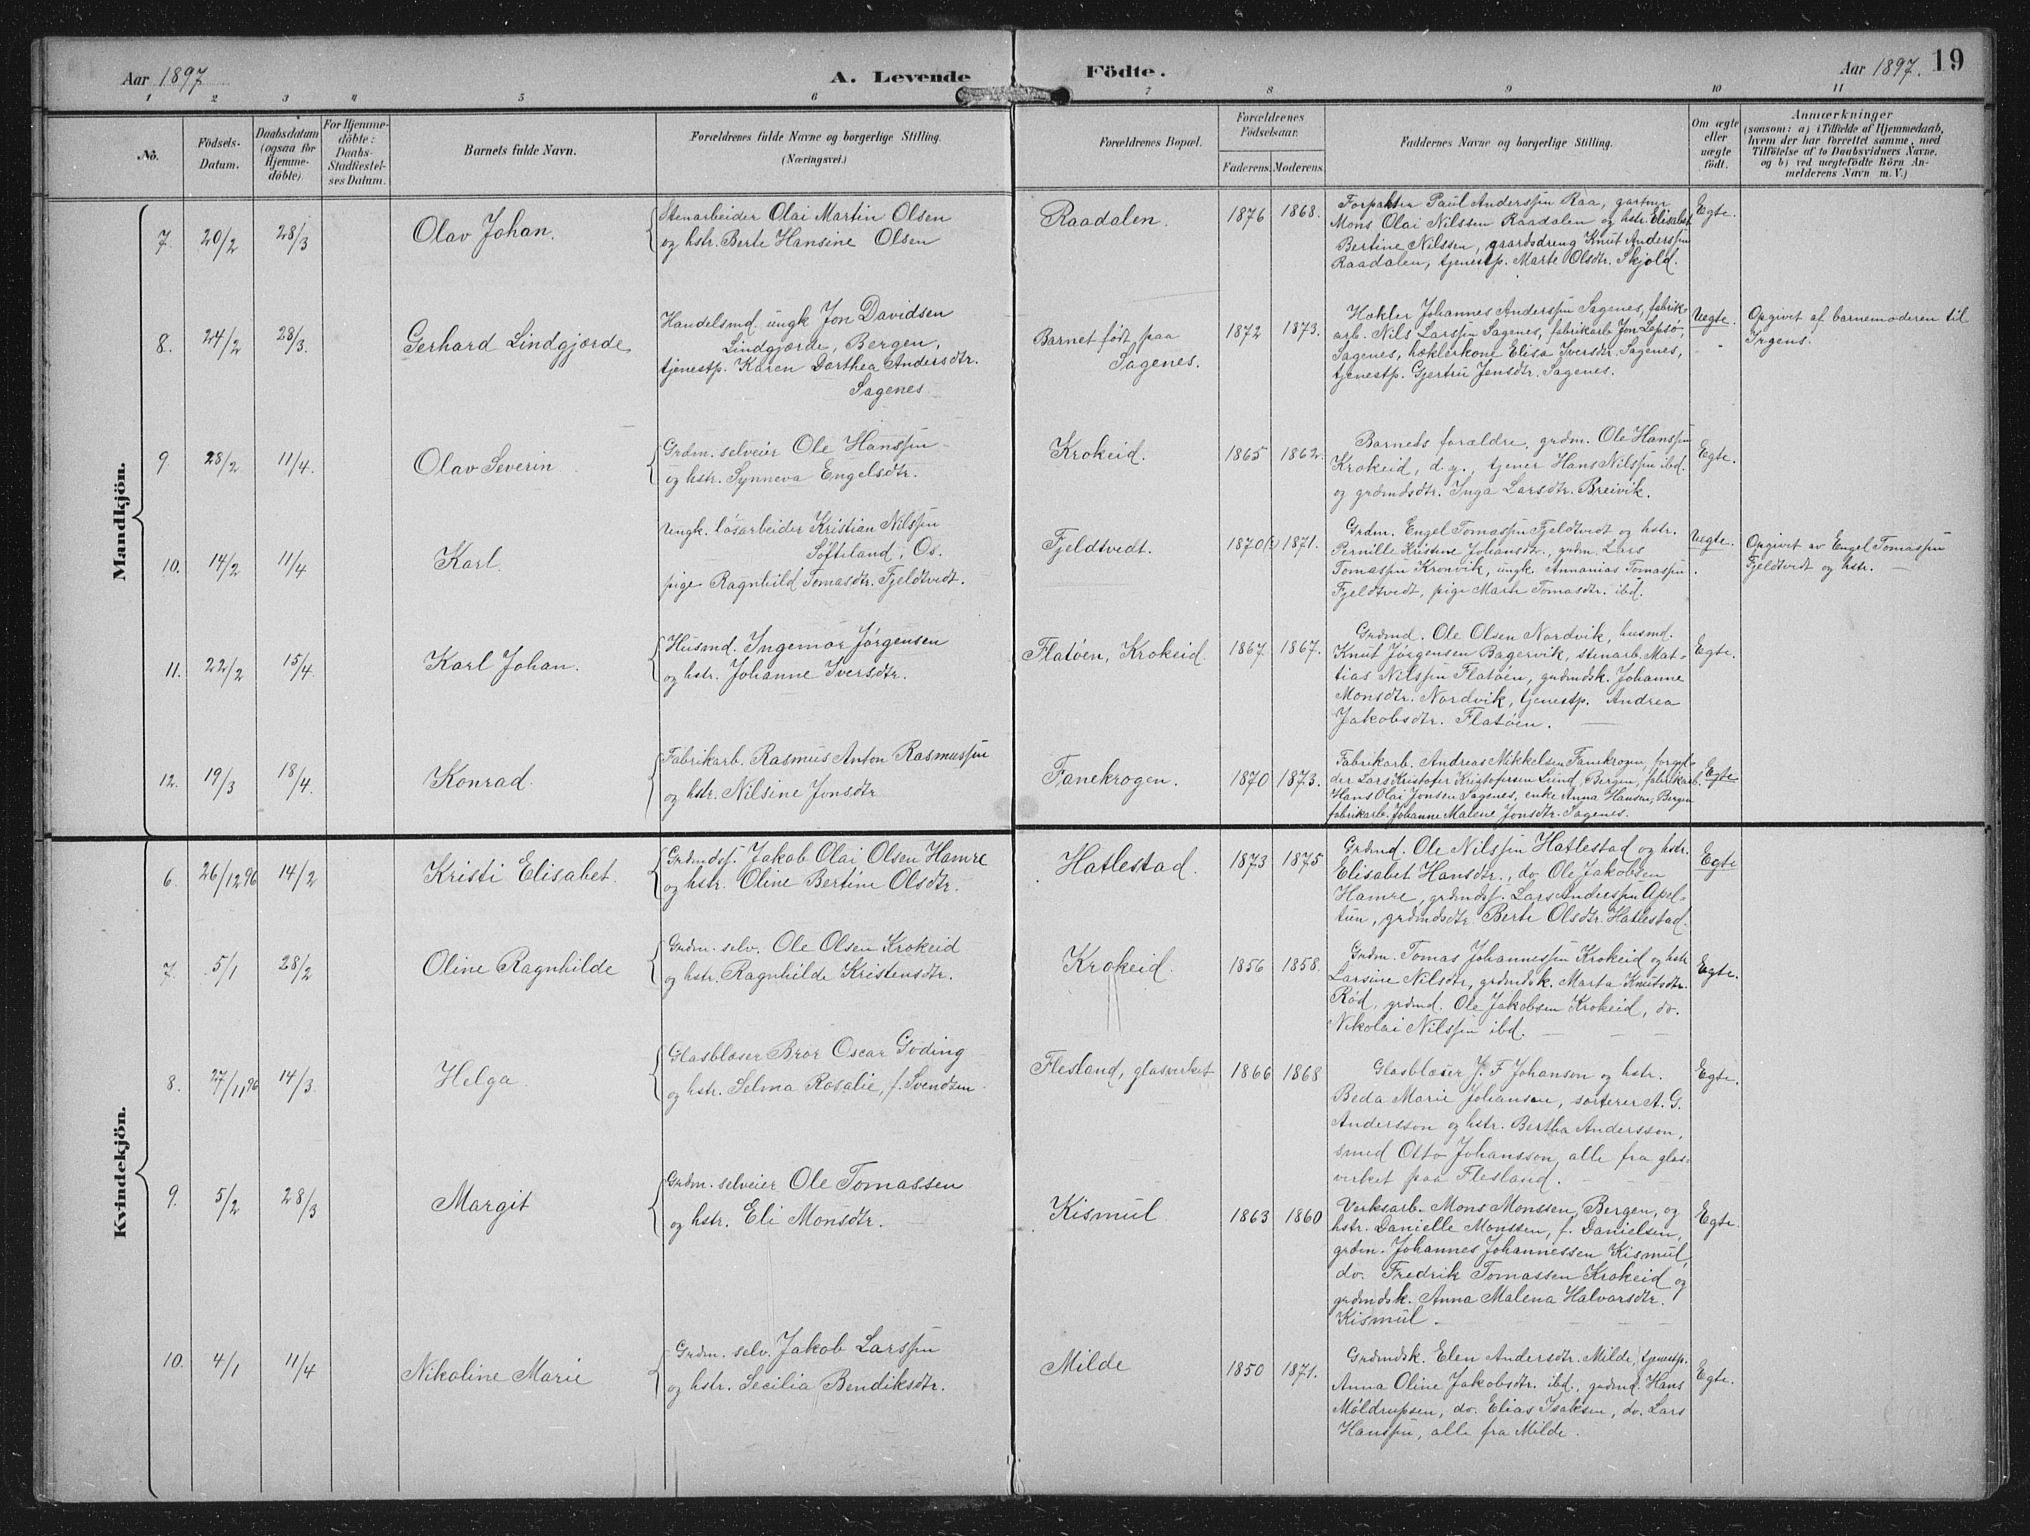 Aar 1897
A. Levende Födte.
Aar 1897. 19
1 2 3 4 5 6 7 8 9 10 11
No.
Födsels-
Datum.
Daabsdatum
(ogsaa for
Hjemme-
döbte).
For Hjemme-
döbte:
Daabs-
Stadfæstel-
ses Datum.
Barnets fulde Navn.
Forældrenes fulde Navne og borgerlige Stilling.
(Næringsvei.)
Forældrenes Bopæl.
Forældrenes
Födselsaar.
Faderens. Moderens.
Faddernes Navne og borgerlige Stilling.
Om ægte
eller
uægte
födt.
Anmærkninger
(saasom: a) i Tilfælde af Hjemmedaab,
hvem der har forrettet samme, med
Tilföielse af to Daabsvidners Navne.
og b) ved uægtefödte Börn An-
melderens Navn m. V.)
Mandkjön.
7. 20/2 28/3 Olav Johan.
Stenarbeider Olai Martin Olsen
og hstr. Berte Hansine Olsen
Raadalen. 1876 1868.
Forpakter Paul Anderssen Raa, gartner
Mons Olai Nilssen Raadalen og hstr. Elisabet
Bertine Nilssen, gaardsdreng Knut Anderssen
Raadalen, tjenestp. Marte Olsdtr. Skjold.
Egte.
8. 24/2 28/3. Gerhard Lindgjærde
Handelsmd. ungk Jon Davidsen
Lindgjærde, Bergen,
tjenestp. Karen Dorthea Andersdtr.
Sagenes
Barnet født paa
Sagenes.
1872 1873.
Hekler Johannes Anderssen Sagenes, fabrik-
arb. Nils Larssen Sagenes, fabrikarb Jon Lepsø,
Sagenes, heklerkone Elisa Iversdtr. Sagenes,
tjenestp. Gjertru Jensdtr. Sagenes.
Uegte.
Opgivet af barnemoderen til
Irgens.
9 28/2 11/4. Olav Severin
Grdm. selveier Ole Hanssen
og hstr. Synneva Engelsdtr.
Krokeid. 1865 1862.
Barneds forældre, grdm. Ole Hanssen
Krokeid, d.y., tjener Hans Nilssen ibd.
og grdmdsdtr. Inga Larsdtr. Breivik.
Egte.
10. 14/2 11/4 Karl.
Ungk. løsarbeider Kristian Nilssen
Søfteland, Os.
pige Ragnhild Tomasdtr. Fjeldtvedt.
Fjeldtvedt. 1870(?) 1871.
Grdm. Engel Tomassen Fjeldtvedt og hstr.
Pernille Kristense Johansdtr., grdm. Lars
Tomassen Kronvik, ungk. Annanias Tomassen
Fjeldtvedt, pige Marte Tomasdtr. ibd.
Uegte.
Opgivet av Engel Tomassen
Fjeldtvedt og hstr.
11. 22/2 15/4. Karl Johan.
Husmd. Ingemar Jørgensen
og hstr. Johanne Iversdtr.
Flatøen, Krokeid. 1867 1867.
Grdmd. Ole Olsen Nordvik, husmd.
Knut Jørgensen Bagervik, stenarb. Mat-
tias Nilssen Flatøen, grdmdsk. Johanne
Monsdtr. Nordvik, tjenestp. Andrea
Jakobsdtr. Flatøen.
Egte.
12. 19/3 18/4. Konrad.
Fabrikarb. Rasmus Anton Rasmussen
og hstr. Nilsine Jonsdtr
Fanekrogen. 1870 1873.
Fabrikarb. Andreas Mikkelsen Fanekrogen, forgyl-
der Lars Kristofer Kristofersen Lund, Bergen, fabrikarb.
Hans Olai Jonsen Sagenes, enke Anna Hansen, Bergen
fabrikarb. Johanne Malene Jonsdtr. Sagenes.
Egte
Kvindekjön.
6. 26/12 96 14/2 Kristi Elisabet.
Grdmdsf. Jakob Olai Olsen Hamre
og hstr. Oline Bertine Olsdtr.
Hatlestad. 1873 1875
Grdmd. Ole Nilssen Hatlestad og hstr.
Elisabet Hansdtr., do Ole Jakobsen
Hamre, grdmdsf. Lars Anderssen Apel-
tun, grdmdsdtr Berte Olsdtr. Hatlestad.
Egte
7. 5/1 28/2 Oline Ragnhilde
Grdm. selv. Ole Olsen Krokeid
og hstr. Ragnhilde Kristensdtr.
Krokeid. 1856 1858.
Grdm. Tomas Johannessen Krokeid og hstr
Larsine Nilsdtr, grdmdsk. Marta Knutsdtr.
Rød, grdmd. Ole Jakobsen Krokeid, do.
Nikolai Nilssen ibd.
Egte.
8. 27/1 96 14/3. Helga.
Glasblæser Bror Oscar Goding
og hstr. Selma Rosalie, f. Svendsen
Flesland, glasverket 1866 1868
Glasblæser J. F. Johanson og hstr.
Beda Marie Johanson, sorterer A. G.
Andersson og hstr. Bertha Andersson,
smed Otto Johansson, alle fra glas-
verket paa Flesland.
Egte.
9. 5/2 28/3 Margit
Grdm. selveier Ole Tomassen
og hstr. Eli Monsdtr.
Kismul. 1863 1860
Verksarb. Mons Monssen, Bergen, og
hstr. Danielle Monssen, f. Danielsen,
grdm. Johannes Johannessen Kismul,
do. Fredrik Tomassen Krokeid og
grdmdsk. Anna Malena Halvorsdtr.
Kismul.
Egte.
10. 4/1 11/4 Nikoline Marie
Grdm. selv. Jakob Larssen
og hstr. Secilia Bendiksdtr.
Milde 1850 1871.
Grdmdsk. Elen Andersdtr. Milde, tjenestp.
Anna Oline Jakobsdtr. ibd., grdmd. Hans
Møldrupsen, do. Elias Isaksen, do. Lars
Hanssen, alle fra Milde.
Egte.